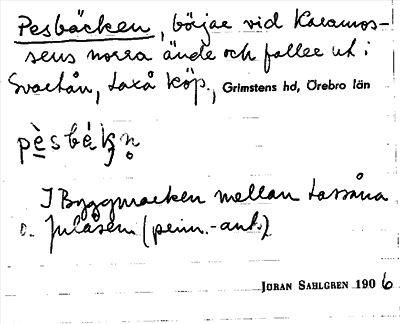 Pesbäcken, börjar vid Karamos-
sens norra ände och faller ut i
Svartån, Laxå köp., Grimstens hd, Örebro län
pèsbékn
I Byggmarken mellan Lassåna
o. Julåsen (penn.-ant.)
JÖRAN SAHLGREN 1906